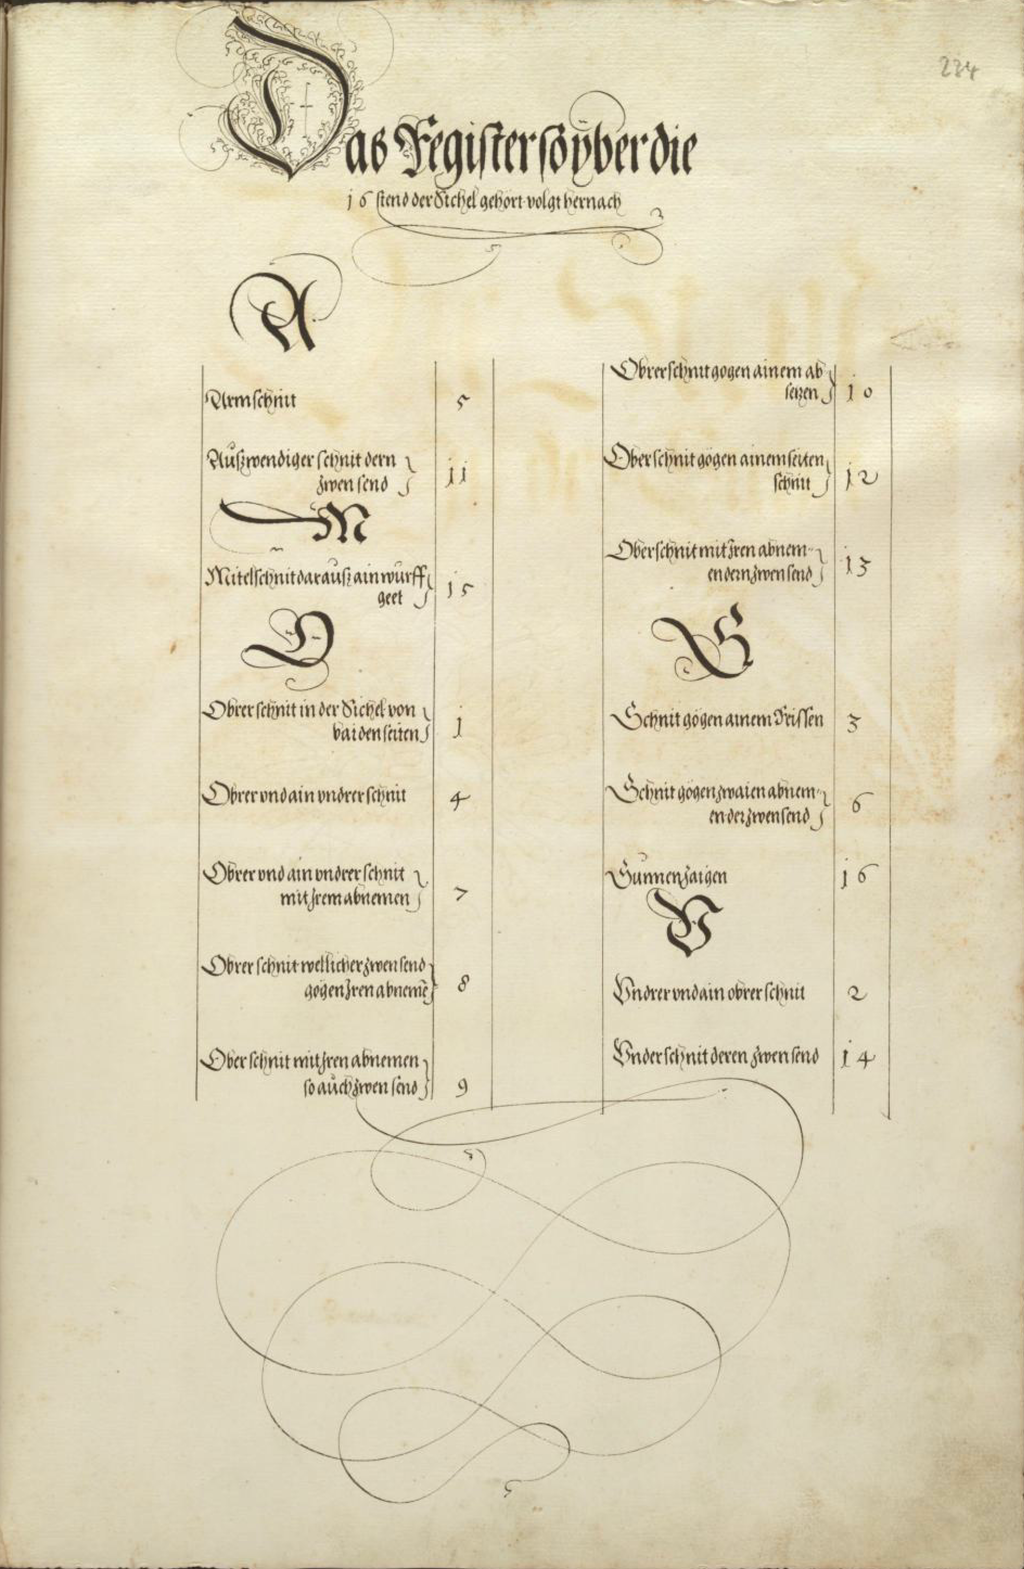 234
Das Register so yber die
16 stend der Sichel gehört volgt hernach
A
Armschnit 5
Außwendiger schnit dern
zwen send 11
M
Mitelschnit darauß ain wurff
geet 15
O
Obrer schnit in der Sichel von
baiden seiten 1
Obrer vnd ain vndrer schnit 4
Obrer vnd ain vndrer schnit
mit Jrem abnemen 7
Obrer schnit wellicher zwen send
gögen Jren abnemē 8
Ober schnit mit Jren abnemen
so auch zwen send 9
Obrer schnit gögen ainem ab
setzen 10
Ober schnit gögen ainem seiten
schnit 12
Ober schnit mit Jren abnem-
endern zwen send 13
S
Schnit gögen ainem Reissen 3
Schnit gögen zwaien abnem-
ender zwen send 6
Sunnenzaigen 16
V
Vndrer vnd ain obrer schnit 2
Vnder schnit deren zwen send 14